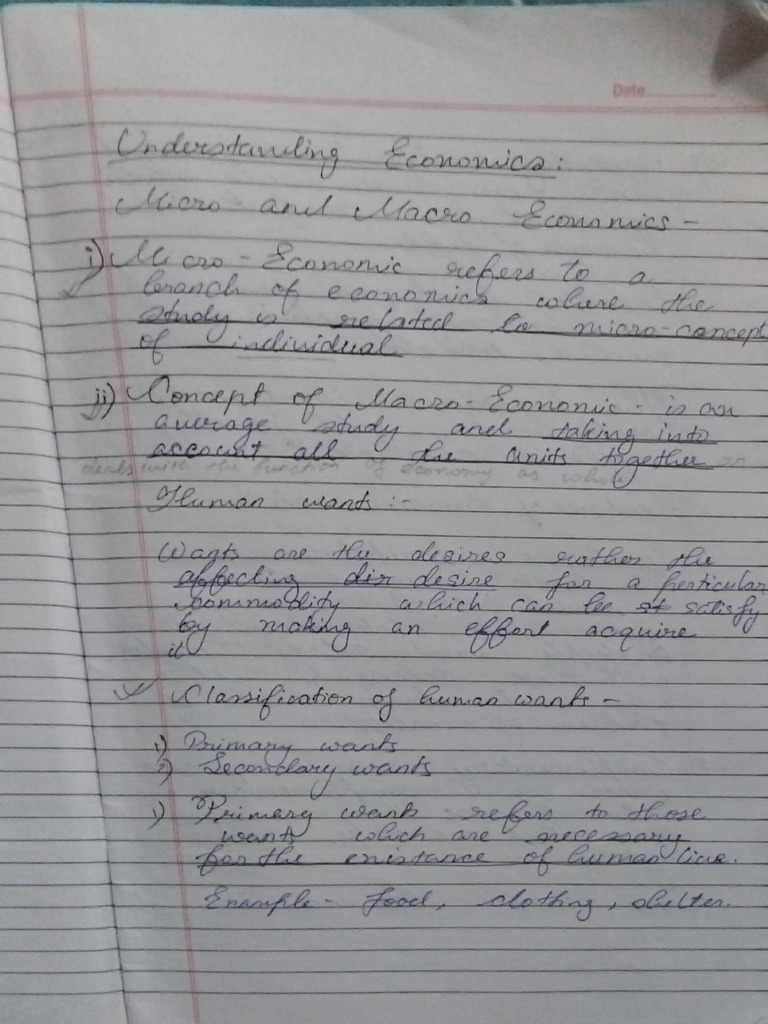 Date
Understanding Economics:
Micro and Macro Economics -
i) Micro-Economic refers to a
branch of economics where the
study is related to micro-concept
of individual
ii) Concept of Macro-Economic - is an
average study and taking into
account all the units together or
deals with the function of economy as whole
Human wants :-
Wants are the desires rather the
affecting dis desire for a perticular
commodity which can be st satisfy
by making an effort acquire
it
Classification of human wants -
1) Primary wants
2) Secondary wants
1) Primary want - refers to those
wants which are necessary
for the existance of human live.
Example - food, clothing, shelter.